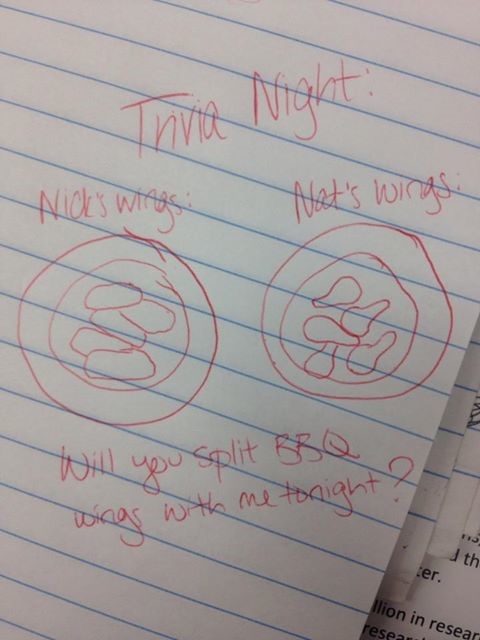 Trivia Night:
Nick's wings:
Nat's wings:
Will you split BBQ
wings with me tonight?
th
ter.
llion in resear
resear